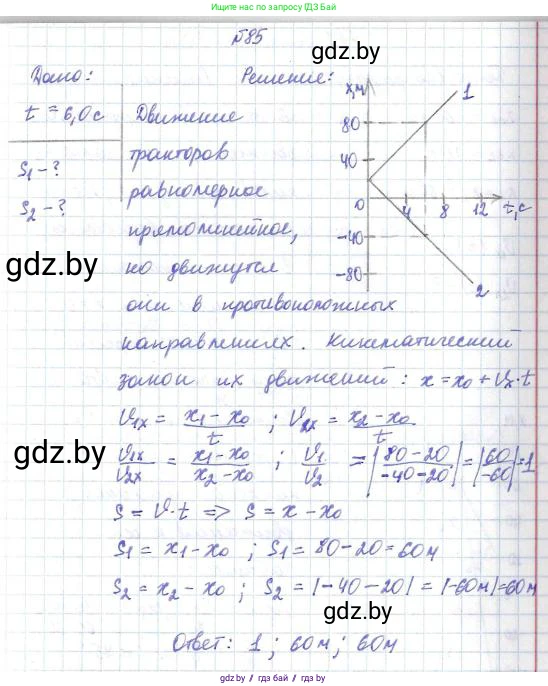 Ищите нас по запросу / ГДЗ.бай
№85
gdz.by
Дано:
Решение:
t = 6,0 с
S₁ - ?
S₂ - ?
Движение
тракторов
равномерное
прямолинейное,
но движутся
они в противоположных
направлениях. Кинематический
закон их движений: x = x₀ + υₓ · t
x, м
80
40
0
-40
-80
4
8
12
t, с
1
2
gdz.by
υ₁ₓ = (x₁ - x₀)/t ; υ₂ₓ = (x₂ - x₀)/t
gdz.by
υ₁ₓ/υ₂ₓ = (x₁ - x₀)/(x₂ - x₀) ; υ₁/υ₂ = |(80 - 20)/(-40 - 20)| = |60/-60| = 1
S = υ · t => S = x - x₀
S₁ = x₁ - x₀ ; S₁ = 80 - 20 = 60 м
S₂ = x₂ - x₀ ; S₂ = |-40 - 20| = |-60 м| = 60 м
gdz.by
Ответ: 1 ; 60 м ; 60 м
gdz.by / гдз.бай / gdz.by